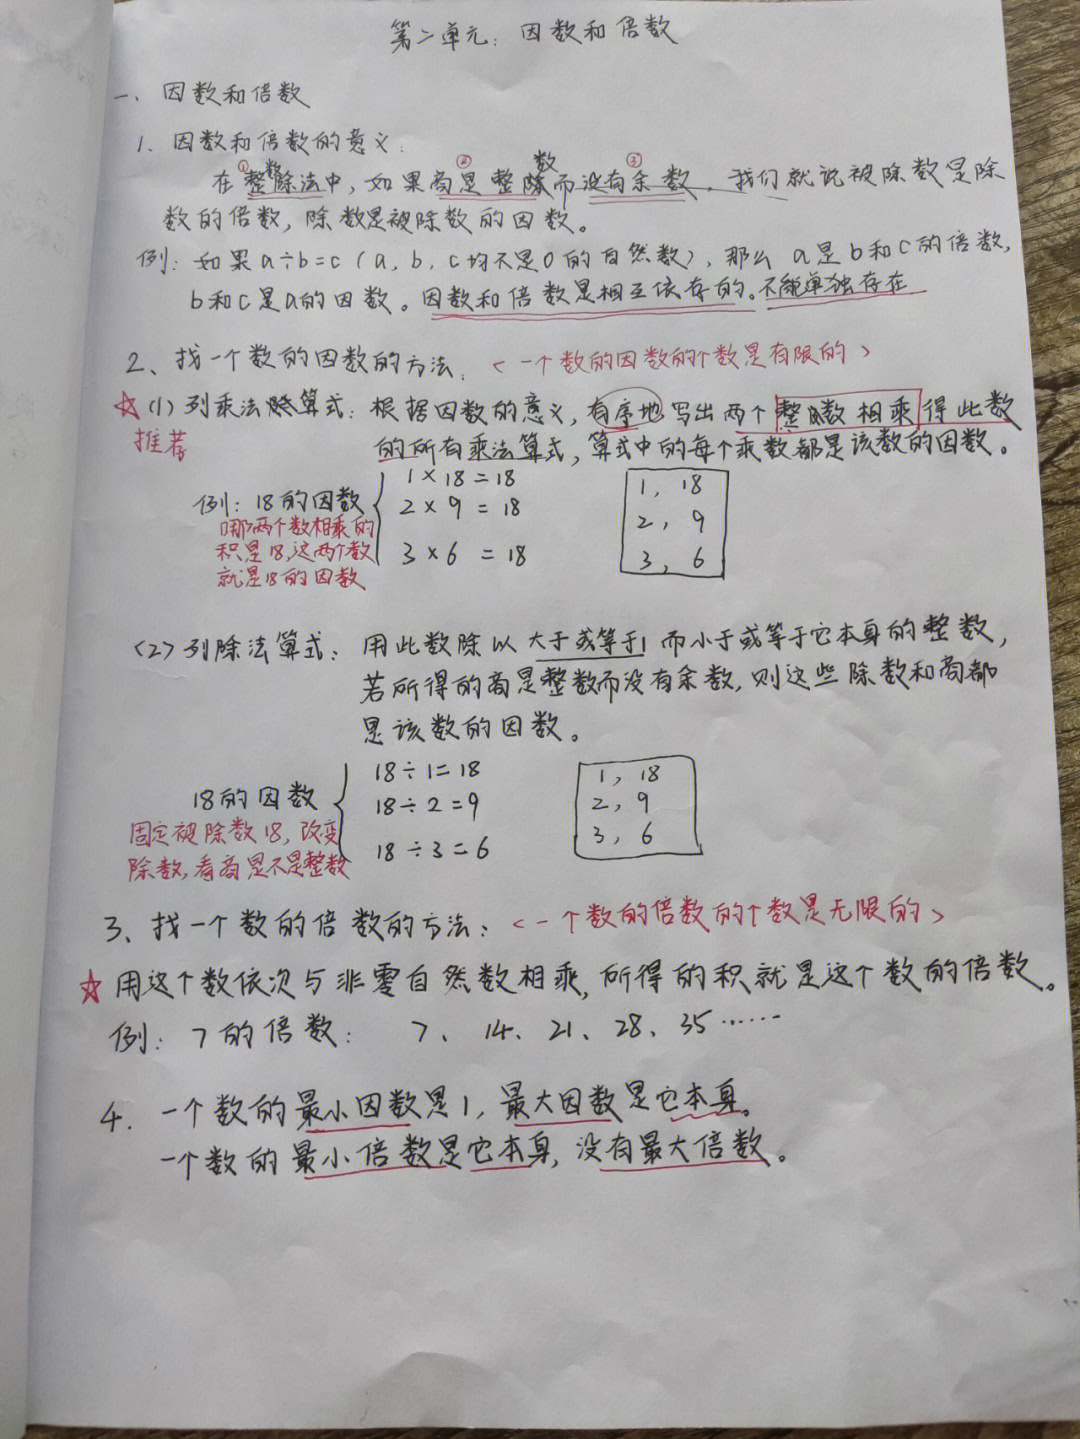 第二单元：因数和倍数
一、因数和倍数
1、因数和倍数的意义：
① ② ③
在整数除法中，如果商是整数而没有余数，我们就说被除数是除
数的倍数，除数是被除数的因数。
例：如果a÷b=c（a，b，c均不是0的自然数），那么a是b和c的倍数，
b和c是a的因数。因数和倍数是相互依存的。不能单独存在
2、找一个数的因数的方法：<一个数的因数的个数是有限的>
☆(1)列乘法算式：根据因数的意义，有序地写出两个整数相乘得此数
推荐 的所有乘法算式，算式中的每个乘数都是该数的因数。
1×18=18
1，18
例：18的因数 2×9=18
2，9
哪两个数相乘的
积是18，这两个数
3×6=18
3，6
就是18的因数
(2)列除法算式：用此数除以大于或等于1而小于或等于它本身的整数，
若所得的商是整数而没有余数，则这些除数和商都
是该数的因数。
18÷1=18
1，18
18的因数 18÷2=9
2，9
固定被除数18，改变
18÷3=6
3，6
除数，看商是不是整数
3、找一个数的倍数的方法：<一个数的倍数的个数是无限的>
☆用这个数依次与非零自然数相乘，所得的积就是这个数的倍数。
例：7的倍数：7、14、21、28、35……
4.一个数的最小因数是1，最大因数是它本身。
一个数的最小倍数是它本身，没有最大倍数。